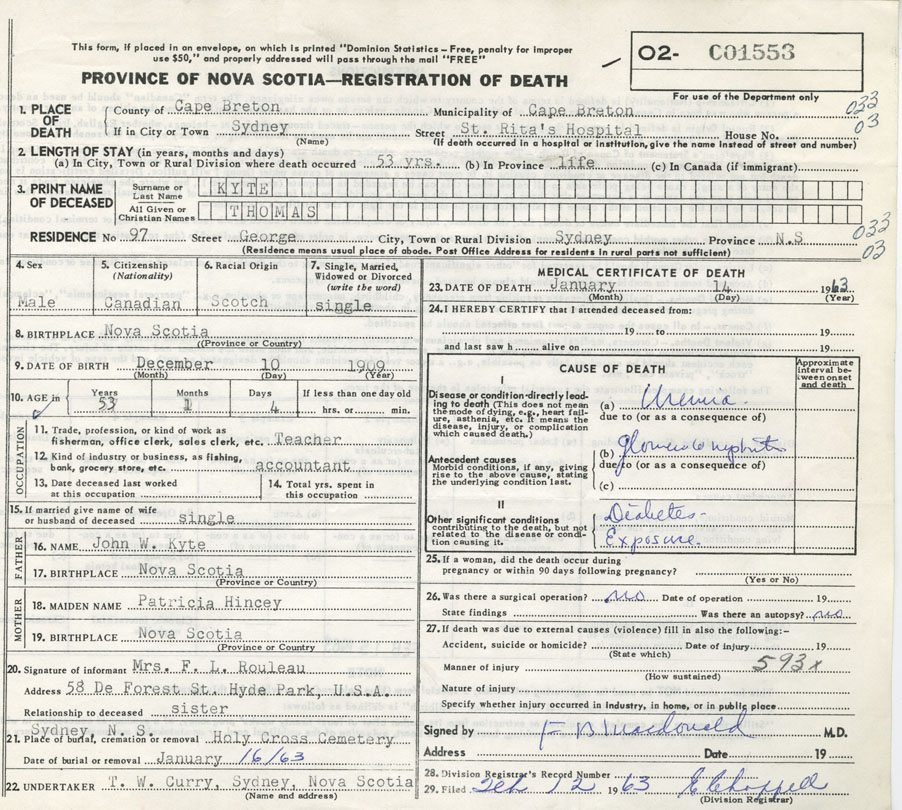 This form, if placed in an envelope, on which is printed "Dominion Statistics - Free, penalty for improper
use $50," and properly addressed will pass through the mail "FREE"
O2- C01553
PROVINCE OF NOVA SCOTIA—REGISTRATION OF DEATH
For use of the Department only
1. PLACE OF DEATH
County of Cape Breton Municipality of Cape Breton 033
If in City or Town Sydney Street St. Rita's Hospital House No. 03
(Name) (If death occurred in a hospital or institution, give the name instead of street and number)
2. LENGTH OF STAY (in years, months and days)
(a) In City, Town or Rural Division where death occurred 53 yrs. (b) In Province life (c) In Canada (if immigrant)
3. PRINT NAME OF DECEASED
Surname or Last Name KYTE
All Given or Christian Names THOMAS
033
RESIDENCE No 97 Street George City, Town or Rural Division Sydney Province N.S 03
(Residence means usual place of abode. Post Office Address for residents in rural parts not sufficient)
4. Sex
Male
5. Citizenship
(Nationality)
Canadian
6. Racial Origin
Scotch
7. Single, Married,
Widowed or Divorced
(write the word)
single
8. BIRTHPLACE Nova Scotia
(Province or Country)
9. DATE OF BIRTH December 10 1909
(Month) (Day) (Year)
10. AGE in
Years Months Days If less than one day old
53 1 4 hrs. or min.
OCCUPATION
11. Trade, profession, or kind of work as
fisherman, office clerk, sales clerk, etc. Teacher
12. Kind of industry or business, as fishing,
bank, grocery store, etc. accountant
13. Date deceased last worked
at this occupation
14. Total yrs. spent in
this occupation
15. If married give name of wife
or husband of deceased single
FATHER
16. NAME John W. Kyte
17. BIRTHPLACE Nova Scotia
(Province or Country)
MOTHER
18. MAIDEN NAME Patricia Hincey
19. BIRTHPLACE Nova Scotia
(Province or Country)
20. Signature of informant Mrs. F. L. Rouleau
Address 58 De Forest St. Hyde Park, U.S.A.
Relationship to deceased sister
Sydney, N. S.
21. Place of burial, cremation or removal Holy Cross Cemetery
Date of burial or removal January 16/63
22. UNDERTAKER T. W. Curry, Sydney, Nova Scotia
(Name and address)
MEDICAL CERTIFICATE OF DEATH
23. DATE OF DEATH January 14 1963
(Month) (Day) (Year)
24. I HEREBY CERTIFY that I attended deceased from:
19 to 19
and last saw h alive on 19
CAUSE OF DEATH
Approximate interval between onset and death
I
Disease or condition directly leading
to death (This does not mean
the mode of dying, e.g., heart failure,
asthenia, etc. It means the
disease, injury, or complication
which caused death.)
(a) Uremia
due to (or as a consequence of)
Antecedent causes
Morbid conditions, if any, giving
rise to the above cause, stating
the underlying condition last.
(b)
due to (or as a consequence of)
(c)
II
Other significant conditions
contributing to the death, but not
related to the disease or condition
causing it.
Diabetes -
Exposure.
25. If a woman, did the death occur during
pregnancy or within 90 days following pregnancy?
(Yes or No)
26. Was there a surgical operation? no Date of operation 19
State findings Was there an autopsy? no
27. If death was due to external causes (violence) fill in also the following:-
Accident, suicide or homicide? Date of injury 19
(State which)
593x
Manner of injury
(How sustained)
Nature of injury
Specify whether injury occurred in Industry, in home, or in public place
Signed by F B Macdonald M.D.
Address Date 19
28. Division Registrar's Record Number
29. Filed Feb 12 1963
(Division Registrar)